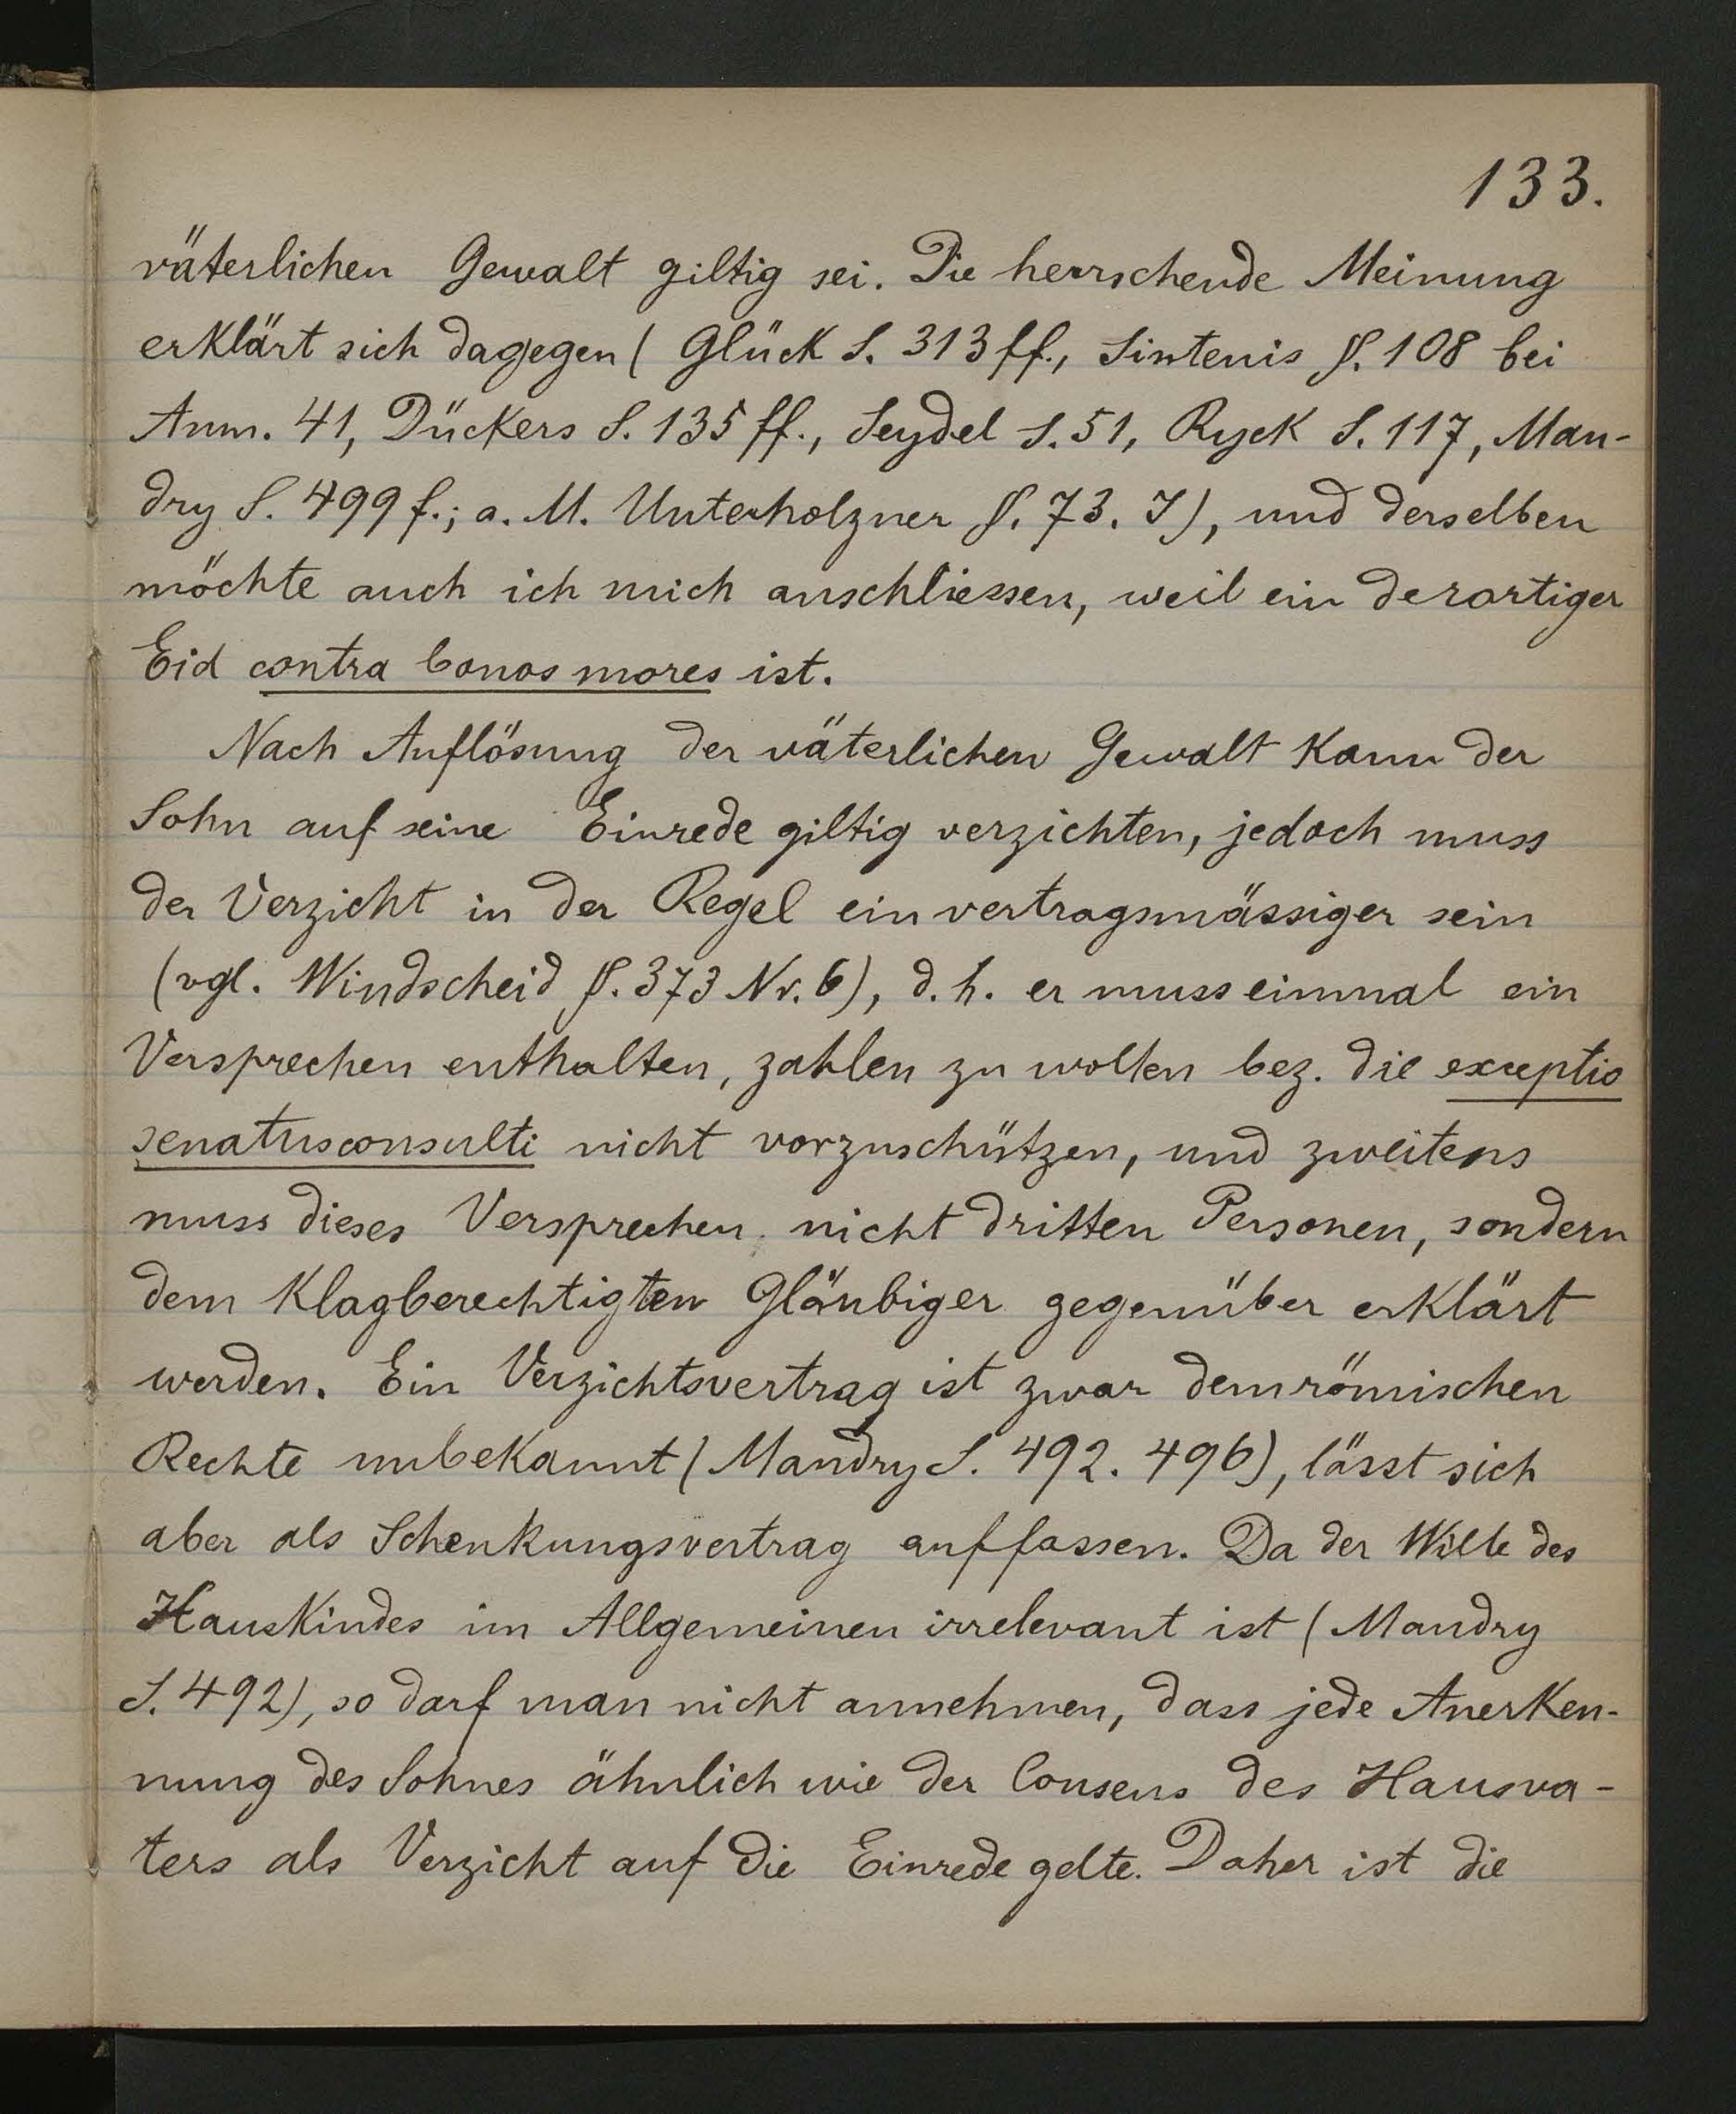 133.
väterlichen Gewalt giltig sei. Die herrschende Meinung
erklärt sich dagegen (Glück S. 313 ff., Sintenis §. 108 bei
Anm. 41, Dückers S. 135 ff., Seydel S. 51, Ryck S. 117, Man-
dry S. 499 f.; a. M. Unterholzner §. 73. I), und derselben
möchte auch ich mich anschliessen, weil ein derartiger
Eid contra bonos mores ist.
Nach Auflösung der väterlichen Gewalt kann der
Sohn auf seine Einrede giltig verzichten, jedoch muss
der Verzicht in der Regel ein vertragsmässiger sein
(vgl. Windscheid §. 373 Nr. 6), d. h. er muss einmal ein
Versprechen enthalten, zahlen zu wollen bez. die exceptio
senatusconsulti nicht vorzuschützen, und zweitens
muss dieses Versprechen nicht dritten Personen, sondern
dem klagberechtigten Gläubiger gegenüber erklärt
werden. Ein Verzichtsvertrag ist zwar dem römischen
Rechte unbekannt (Mandry S. 492. 496), lässt sich
aber als Schenkungsvertrag auffassen. Da der Wille des
Hauskindes im Allgemeinen irrelevant ist (Mandry
S. 492), so darf man nicht annehmen, dass jede Anerken-
nung des Sohnes ähnlich wie der Consens des Hausva-
ters als Verzicht auf die Einrede gelte. Daher ist die